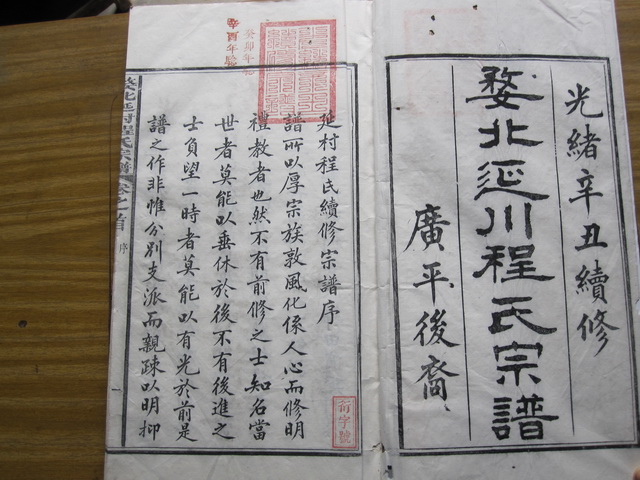 光緒辛丑續修
婺北延川程氏宗譜
廣平後裔
延村程氏續修宗譜序
譜所以厚宗族敦風化係人心而修明
禮教者也然不有前修之士知名當
世者莫能以垂休於後不有後進之
士負望一時者莫能以有光於前是
譜之作非惟分別支派而親疎以明抑
婺北延村程氏宗譜
卷之首
序
辛酉年驗
癸卯年驗
衍字號